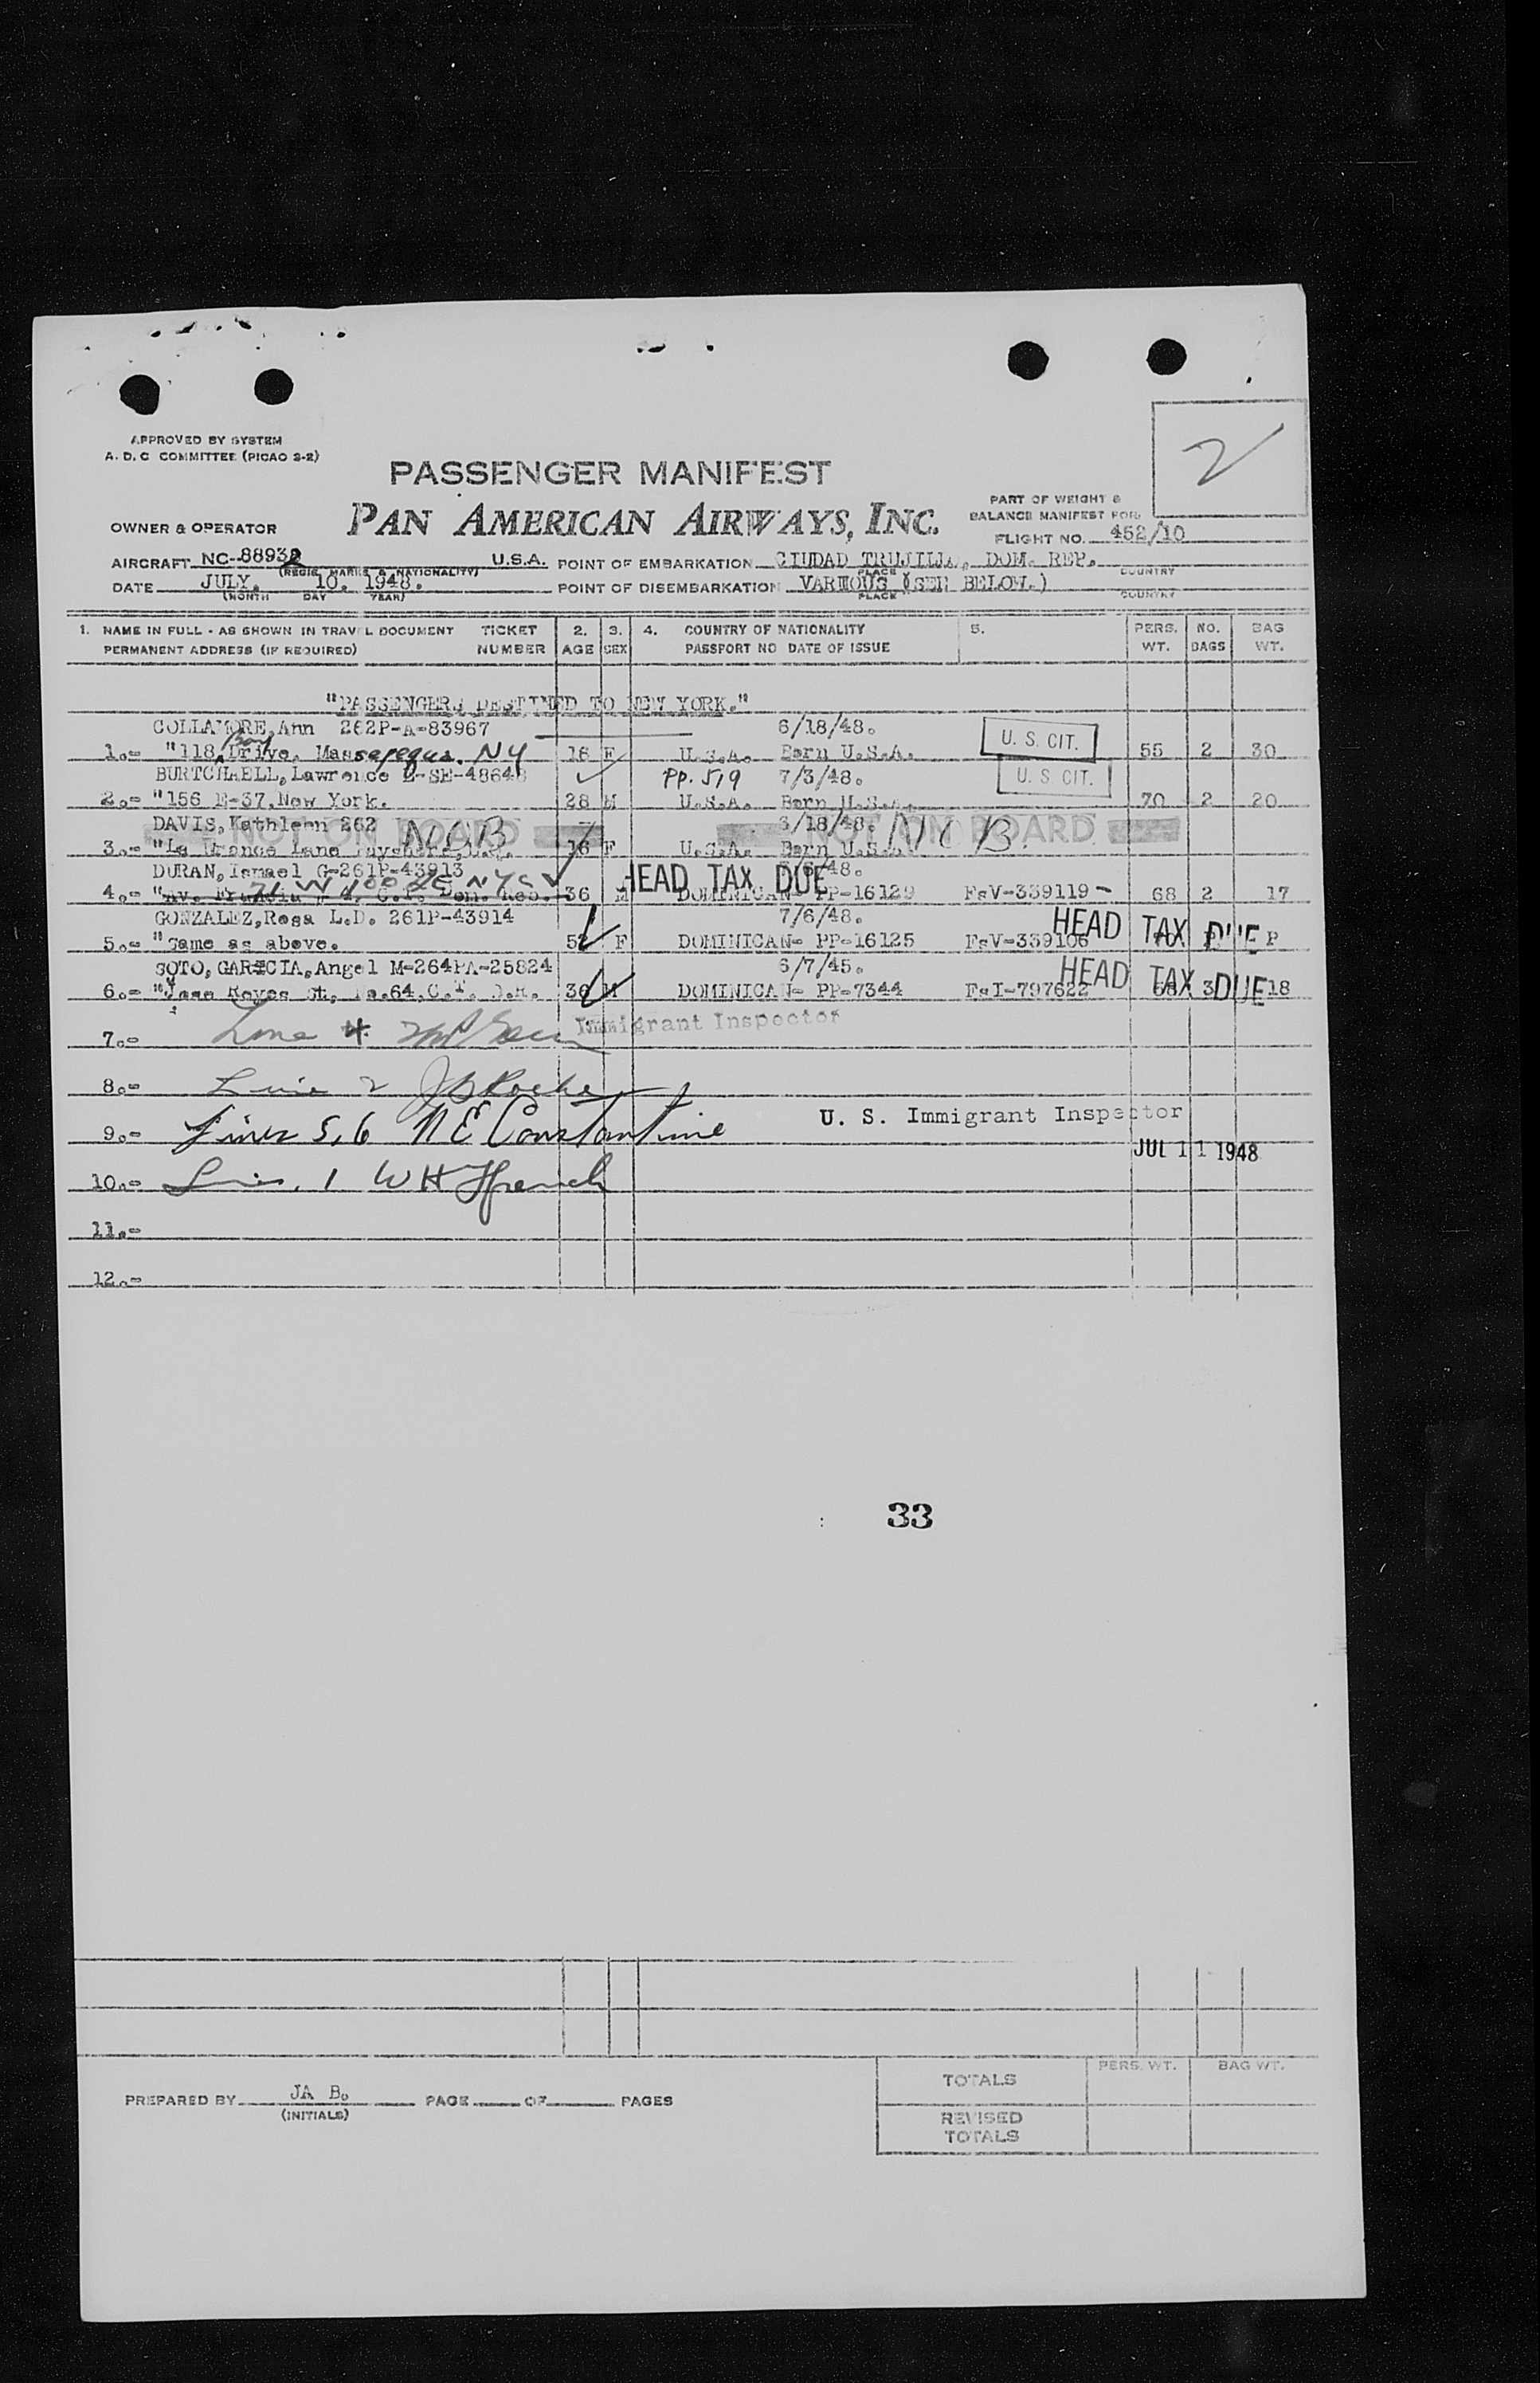 2
APPROVED BY SYSTEM
A. D. C COMMITTEE (PICAO 3-2)
PASSENGER MANIFEST
PAN AMERICAN AIRWAYS, INC.
PART OF WEIGHT &
BALANCE MANIFEST FOR
FLIGHT NO. 452/10
OWNER & OPERATOR
AIRCRAFT NC-88932 U.S.A. POINT OF EMBARKATION CIUDAD TRUJILLO, DOM. REP.
(REGIS. MARKS & NATIONALITY) PLACE COUNTRY
DATE JULY, 10. 1948. POINT OF DISEMBARKATION VARIOUS (SEE BELOW.)
(MONTH DAY YEAR) PLACE COUNTRY
1. NAME IN FULL - AS SHOWN IN TRAVEL DOCUMENT TICKET 2. 3. 4. COUNTRY OF NATIONALITY 5. PERS. NO. BAG
PERMANENT ADDRESS (IF REQUIRED) NUMBER AGE SEX PASSPORT NO DATE OF ISSUE WT. BAGS WT.
"PASSENGERS DESTINED TO NEW YORK."
COLLAMORE, Ann 262P-A-83967 6/18/48. U. S. CIT.
1.- "118 Bay Drive. Massepequa. NY 16 F U.S.A. Born U.S.A. 55 2 30
BURTCHAELL, Lawrence E-SE-48648 PP. 519 7/3/48. U. S. CIT.
2.- "156 E-37, New York. 28 M U.S.A. Born U.S.A. 70 2 20
DAVIS, Kathleen 262 NOB 6/18/48. NOB.
NOT ON BOARD NOT ON BOARD
3.- "Le Lane Bayshore, 16 F U.S.A. Born U.S.A.
DURAN, Ismael G-261P-43913 /48.
W 100 St NYC HEAD TAX DUE
4.- "Av. C.T. Dom. Rep. 36 M DOMINICAN- PP-16129 FsV-339119- 68 2 17
GONZALEZ, Rosa L.D. 261P-43914 7/6/48. HEAD TAX DUE
5.- "Same as above. 52 F DOMINICAN- PP-16125 FsV-339106 P
SOTO, GARCIA, Angel M-264PA-25824 6/7/45. HEAD TAX DUE
6.- "Jose Reyes St. No.64. C.T. D.R. 36 M DOMINICAN- PP-7344 FsI-797622 68 3 18
7.- Line 4 Immigrant Inspector
8.- Line 2 J Roche
9.- Lines 5, 6 N E Constantine U. S. Immigrant Inspector
JUL 11 1948
10.- Line. 1 W H French
11.-
12.-
33
TOTALS PERS. WT. BAG WT.
PREPARED BY JA B. PAGE OF PAGES
(INITIALS)
REVISED
TOTALS